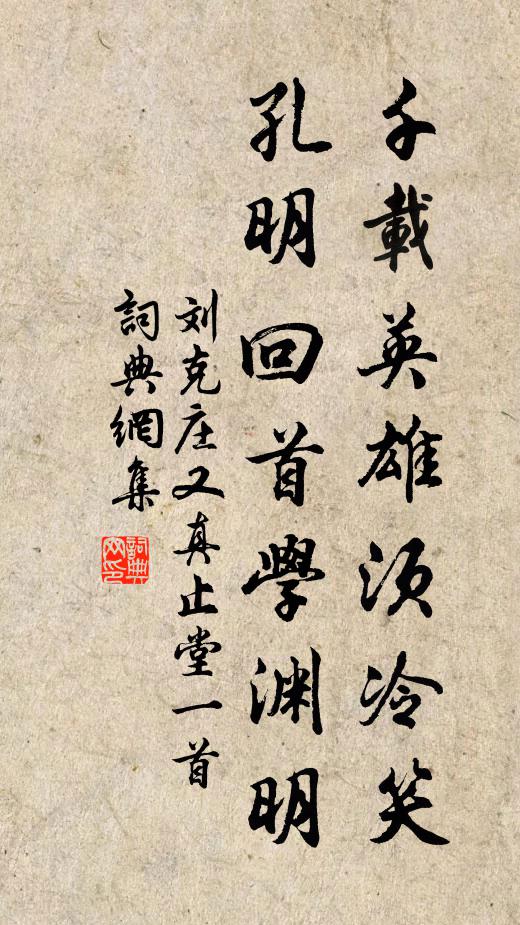 千載英雄須冷笑
孔明回首學淵明
刘克庄又真止堂一首
詞典網集
詞典网印